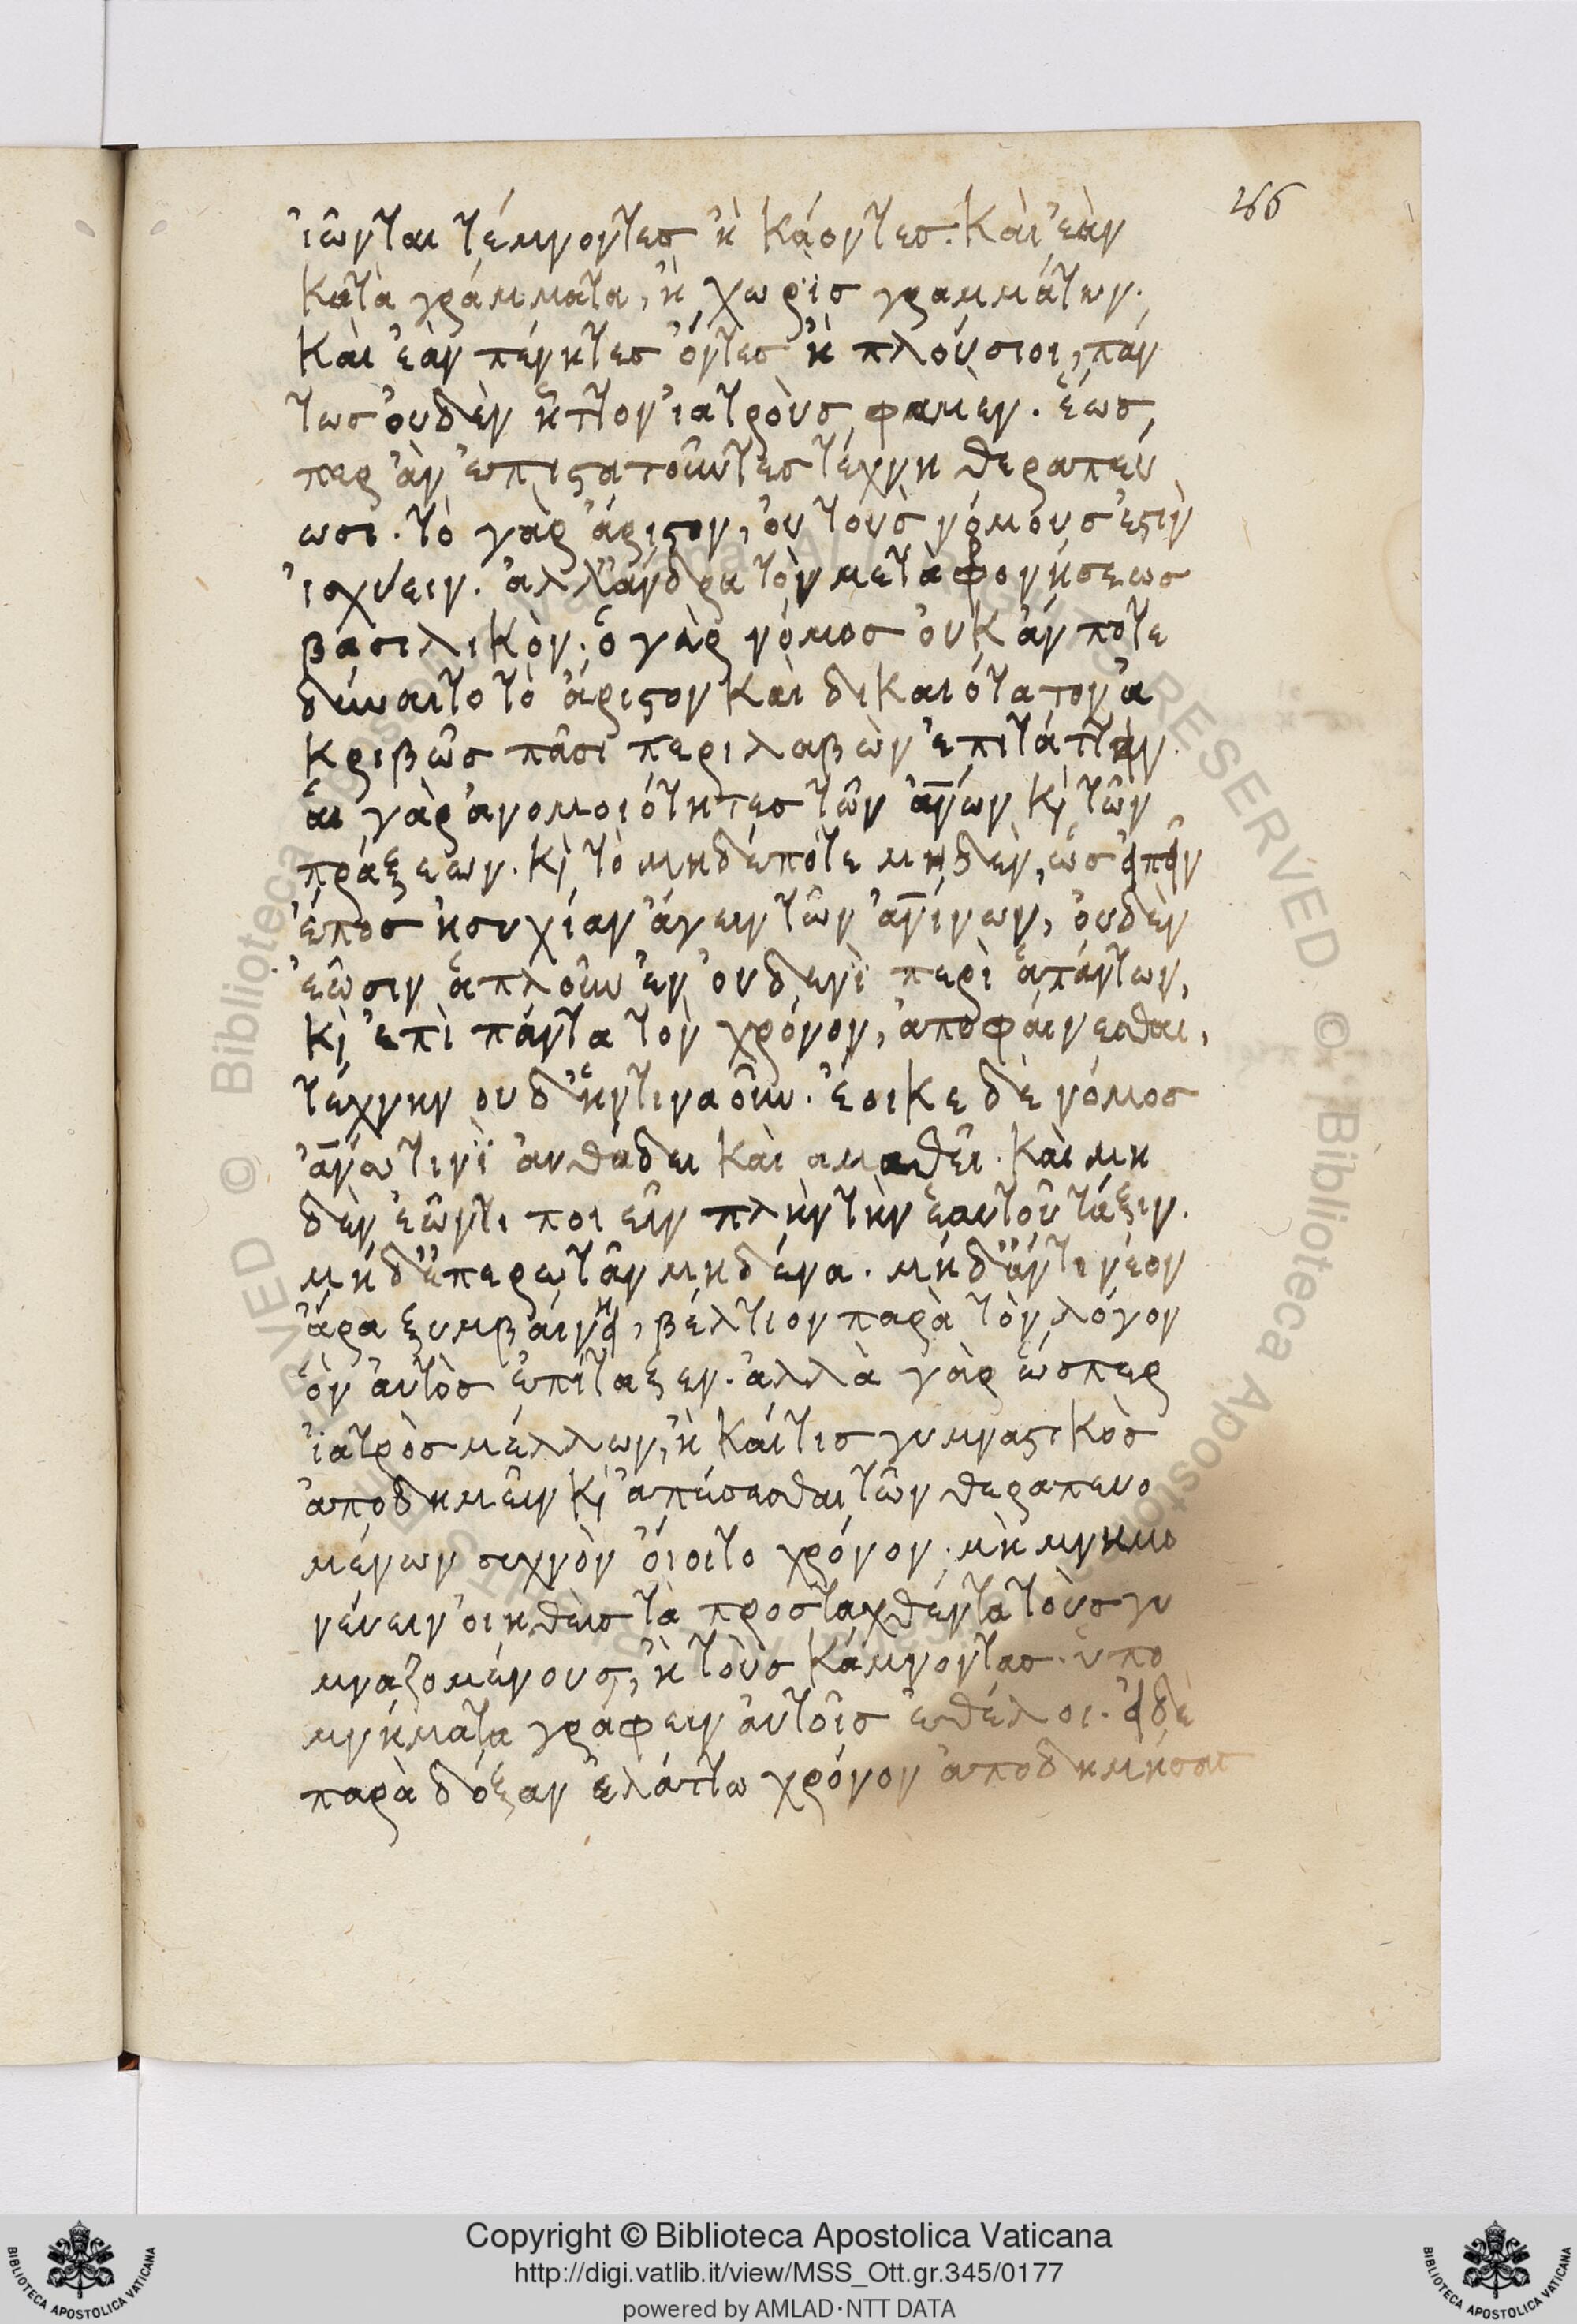 266
ἰῶνται τέμνοντες ἢ κάοντες. καὶ ἐὰν
κατὰ γράμματα, ἢ χωρὶς γραμμάτων.
καὶ ἐὰν πένητες ὄντες ἢ πλούσιοι, πάν
τως ὀυδὲν ἧττον ἰατροὺς φαμὲν. ἕως,
περ ἂν ἐπιστατοῦντες τέχνη θεραπεύ
ωσι. τὸ γὰρ ἄριστον, ὀυ τοὺς νόμους ἐστὶν
ἰσχύειν. ἀλλ' ἄνδρα τὸν μετὰ φρονήσεως
βασιλικὸν. ὁ γὰρ νόμος ὀυκ ἄν ποτε
δύναιτο τὸ ἄριστον καὶ δικαιότατον ἀ
κριβῶς πᾶσι περιλαβὼν ἐπιτάττειν.
ἁι γὰρ ἀνομοιότητες τῶν ἀν̅ων κὶ τῶν
πράξεων. κὶ τὸ μηδέποτε μηδὲν, ὡς εἰπεῖν
ἔπος ἡσυχίαν ἄγειν τῶν ἀν̅ίνων, ὀυδὲν
ἐῶσιν ἁπλοῦν ἐν ὀυδενὶ περὶ ἁπάντων,
κὶ ἐπὶ πάντα τὸν χρόνον, ἀποφάινεσθαι,
τέχνην ουδ' ἥντιναοῦν. ἔοικε δὲ νόμος
ἀν̅ω τινὶ ἀυθάδει καὶ αμαθεῖ. καὶ μη
δὲν ἐῶντι ποιεῖν πλὴν τὴν ἑαυτοῦ τάξιν.
μήδ' ἐπερωτᾶν μηδένα. μήδ' ἄν τι νέον
ἄρα ξυμβάινῃ, βέλτιον παρὰ τὸν λόγον
ὃν ἀυτὸς ἐπίταξεν. ἀλλὰ γὰρ ὥσπερ
ἰατρὸς μέλλων, ἢ κάι τις γυμναστικὸς
ἀποδημεῖν κὶ ἀπέσεσθαι τῶν θεραπευο
μένων συχνὸν ὄιοιτο χρόνον. μὴ μνημο
νέυειν ὀιηθεὶς τὰ προσταχθέντα τοὺς γυ
μναζομένους, ἢ τοὺς κάμνοντας. ὑπο
μνήματα γράφειν ἀυτοῖς ἐθέλοι. εἰ δὲ
παρὰ δόξαν ἐλάττω χρόνον ἀποδημήσας
Copyright © Biblioteca Apostolica Vaticana
http://digi.vatlib.it/view/MSS_Ott.gr.345/0177
powered by AMLAD·NTT DATA